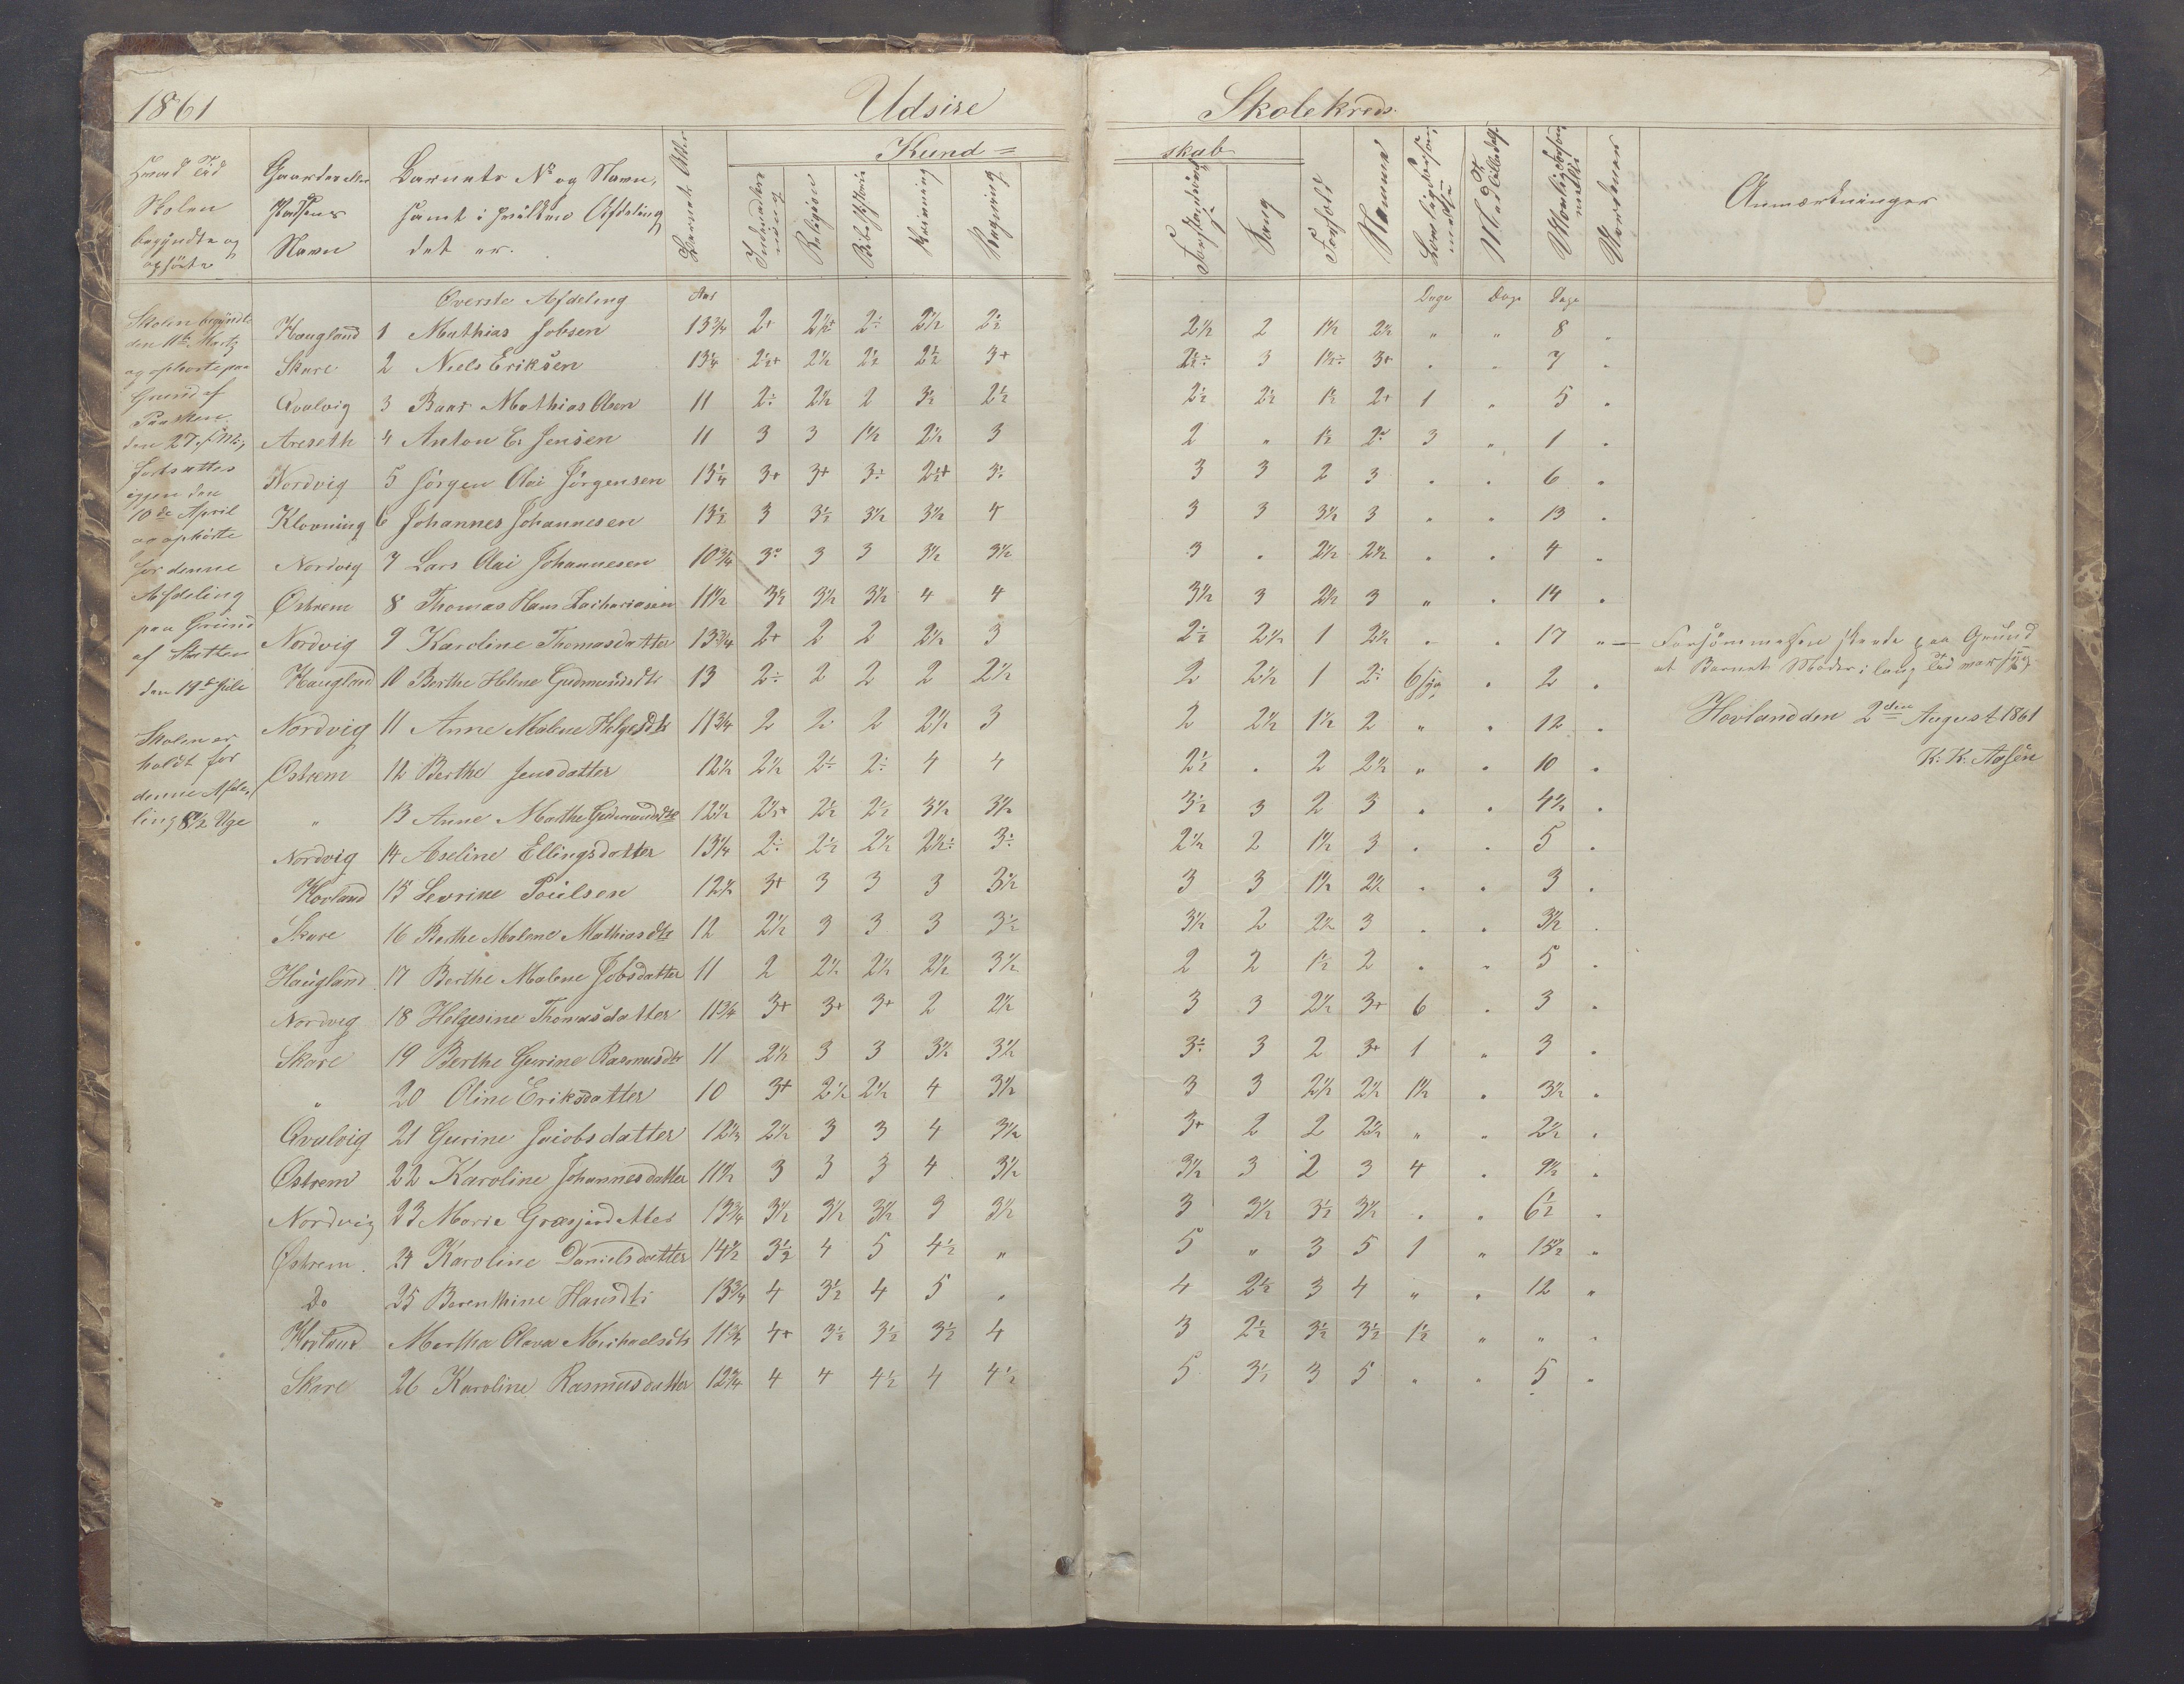 1861 Udsire Skolekreds
Kund= skab
Hvad Tid Skolen begyndte og ophørte
Gaarden eller Pladsens Navn
Barnets No og Navn, samt i hvilken Afdeling det er.
Barnets Alder
Religion
Skrivning
Regning
Sang
Forhold
Navne
Anmærkninger
Øverste Afdeling Aar Dage Dage Dage
Skolen begyndte
den 11te Martz
og ophørte paa
Grund af
Paasken
den 27. s. M.,
fortsattes
igjen den
10de April
og ophørte
for denne
Afdeling
paa Grund
af Slatten
den 19de Juli
Skolen er
holdt for
denne Afde-
ling 8½ Uge
Haugland 1 Mathias Jobsen 13¾ 2+ 2½+ 2÷ 2½ 2½ 2½ 2 1½ 2½ " " 8 "
Skare 2 Niels Eriksen 13¼ 2½+ 2½ 2½ 2½ 3+ 2½÷ 3 1½÷ 3+ " " 7 "
Qvalvig 3 Baar Mathias Olsen 11 2÷ 2½ 2 3½ 2½ 2½ 2½ 1½ 2+ 1 " 5 "
Areseth 4 Anton E. Jensen 11 3 3 1½ 2½ 3 2 " 1½ 2÷ 3 " 1 "
Nordvig 5 Jörgen Olai Jörgensen 13¼ 3+ 3+ 3÷ 2½+ 3÷ 3 3 2 3 " " 6 "
Klovning 6 Johannes Johannesen 13½ 3 3½ 3½ 3½ 4 3 3 3½ 3 " " 13 "
Nordvig 7 Lars Olai Johannesen 10¾ 3÷ 3 3 3½ 3½ 3 " 2½ 2½ " " 4 "
Østrem 8 Thomas Hans Zachariasen 11½ 3½ 3½ 3½ 4 4 3½ 3 2½ 3 " " 14 "
Nordvig 9 Karoline Thomasdatter 13¾ 2+ 2 2 2½ 3 2½ 2½ 1 2½ " " 17 " — Forsømmelsen skeede paa Grund
at Barnets Moder i lang Tid var syg
Haugland 10 Berthe Helene Gudmundsdtr 13 2÷ 2 2 2 2½ 2 2½ 1 2÷ 6 syg " 2 "
Nordvig 11 Anne Malene Helgesdtr 11¾ 2 2 2 2½ 3 2 2½ 1½ 2 " " 12 "
Hovland den 2den August 1861
K. K. Aasen
Østrem 12 Berthe Jensdatter 12½ 2½ 2½ 2÷ 4 4 2½ " 2 2½ " " 10 "
" 13 Anne Marthe Gudmundsdtr 12½ 2½+ 2½ 2½ 3½ 3½ 3½ 3 2 3 " " 4½ "
Nordvig 14 Aseline Ellingsdatter 13¼ 2÷ 2½ 2½ 2½÷ 3÷ 2½ 2 1½ 3 " " 5 "
Hovland 15 Sevrine Poulsen 12½ 3+ 3 3 3 3½ 3 3 1½ 2½ " " 3 "
Skare 16 Berthe Malene Mathiasdtr 12 2½ 3 3 3 3½ 3½ 2 2½ 3 " " 3½ "
Haugland 17 Berthe Malene Jobsdatter 11 2 2½ 2½ 2½ 3½ 2 2 1½ 2 " " 5 "
Nordvig 18 Helgesine Thomasdatter 11¾ 3+ 3+ 3+ 2 2½ 3 3 2½ 3+ 6 " 3 "
Skare 19 Berthe Gurine Rasmusdtr 11 2½ 3 3 3½ 3½ 3÷ 3 2 3+ 1 " 3 "
" 20 Oline Eriksdatter 10 3+ 2½ 2½ 4 3½ 3 3 2½ 2½ 1½ " 3½ "
Qvalvig 21 Gurine Jacobsdatter 12½ 2½ 3 3 4 3½ 3+ 2 2 2½ " " 2½ "
Østrem 22 Karoline Johannesdatter 11½ 3 3 3 4 3½ 3½ 3 2 3 4 " 9½ "
Nordvig 23 Marie Græsjesdatter 13¾ 3½ 3½ 3½ 3 3½ 3 3½ 3½ 3½ " " 6½ "
Østrem 24 Karoline Danielsdatter 14½ 3½ 4 5 4½ " 5 " 3 5 1 " 15½ "
Do 25 Berenthine Hansdtr 13¾ 4 3½ 4 5 " 4 2½ 3 4 " " 12 "
Hovland Martha Olava Michaelsdtr 11¾ 4+ 3½ 3½ 3½ 4 3 2½ 3½ 3½ 1½ " " "
Skare 26 Karoline Rasmusdatter 12¾ 4 4 4½ 4 4½ 5 3½ 3 5 " " 5 "